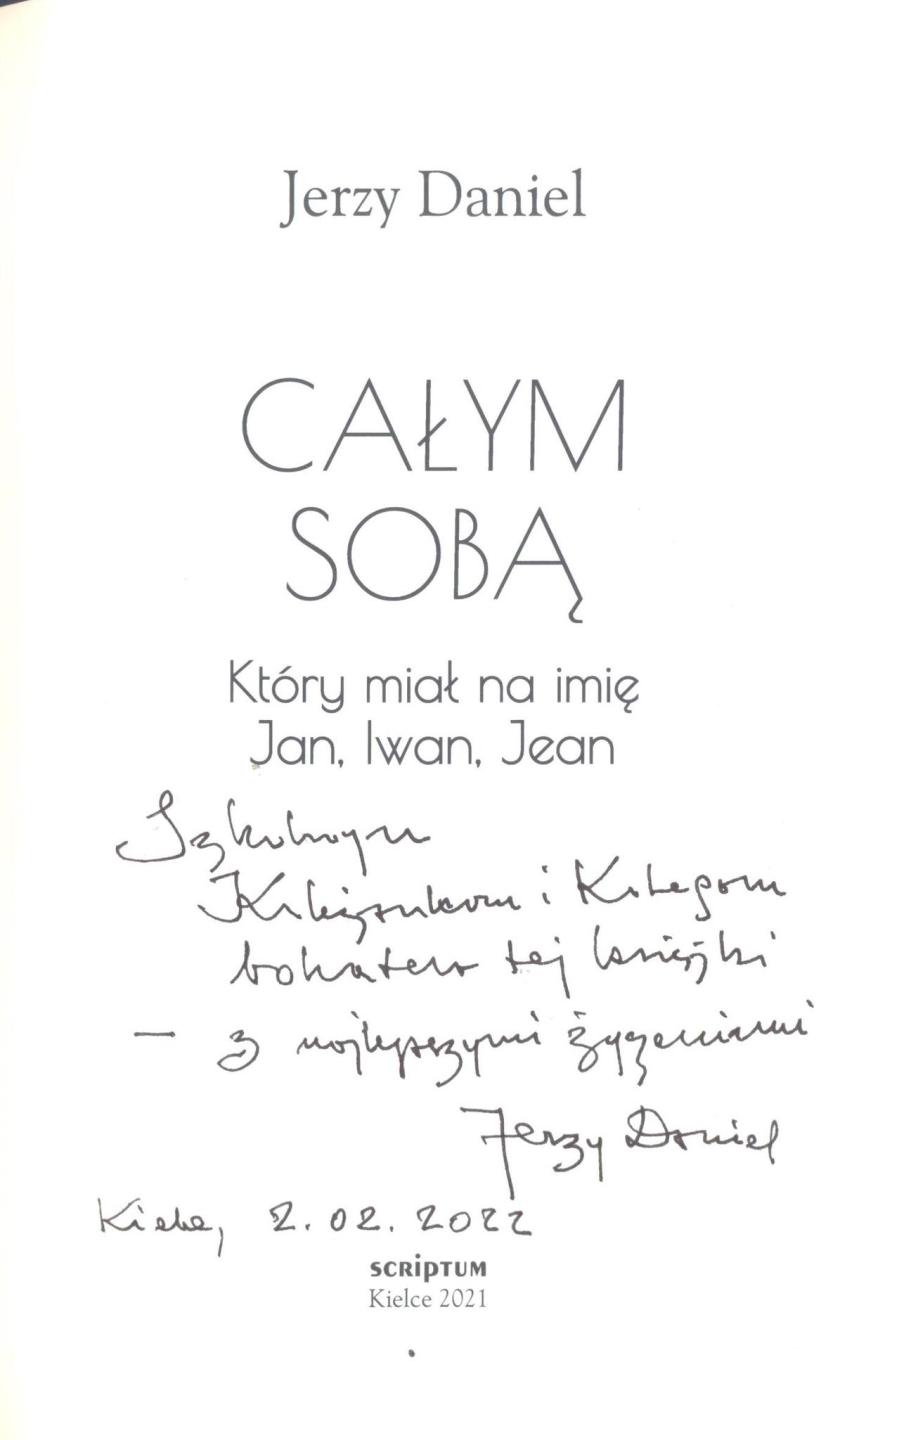 Jerzy Daniel
CAŁYM
SOBĄ
Który miał na imię
Jan, Iwan, Jean
Szkolnym
Koleżankom i Kolegom
bohatera tej książki
– z najlepszymi życzeniami
Jerzy Daniel
Kielce, 2.02.2022
SCRIPTUM
Kielce 2021